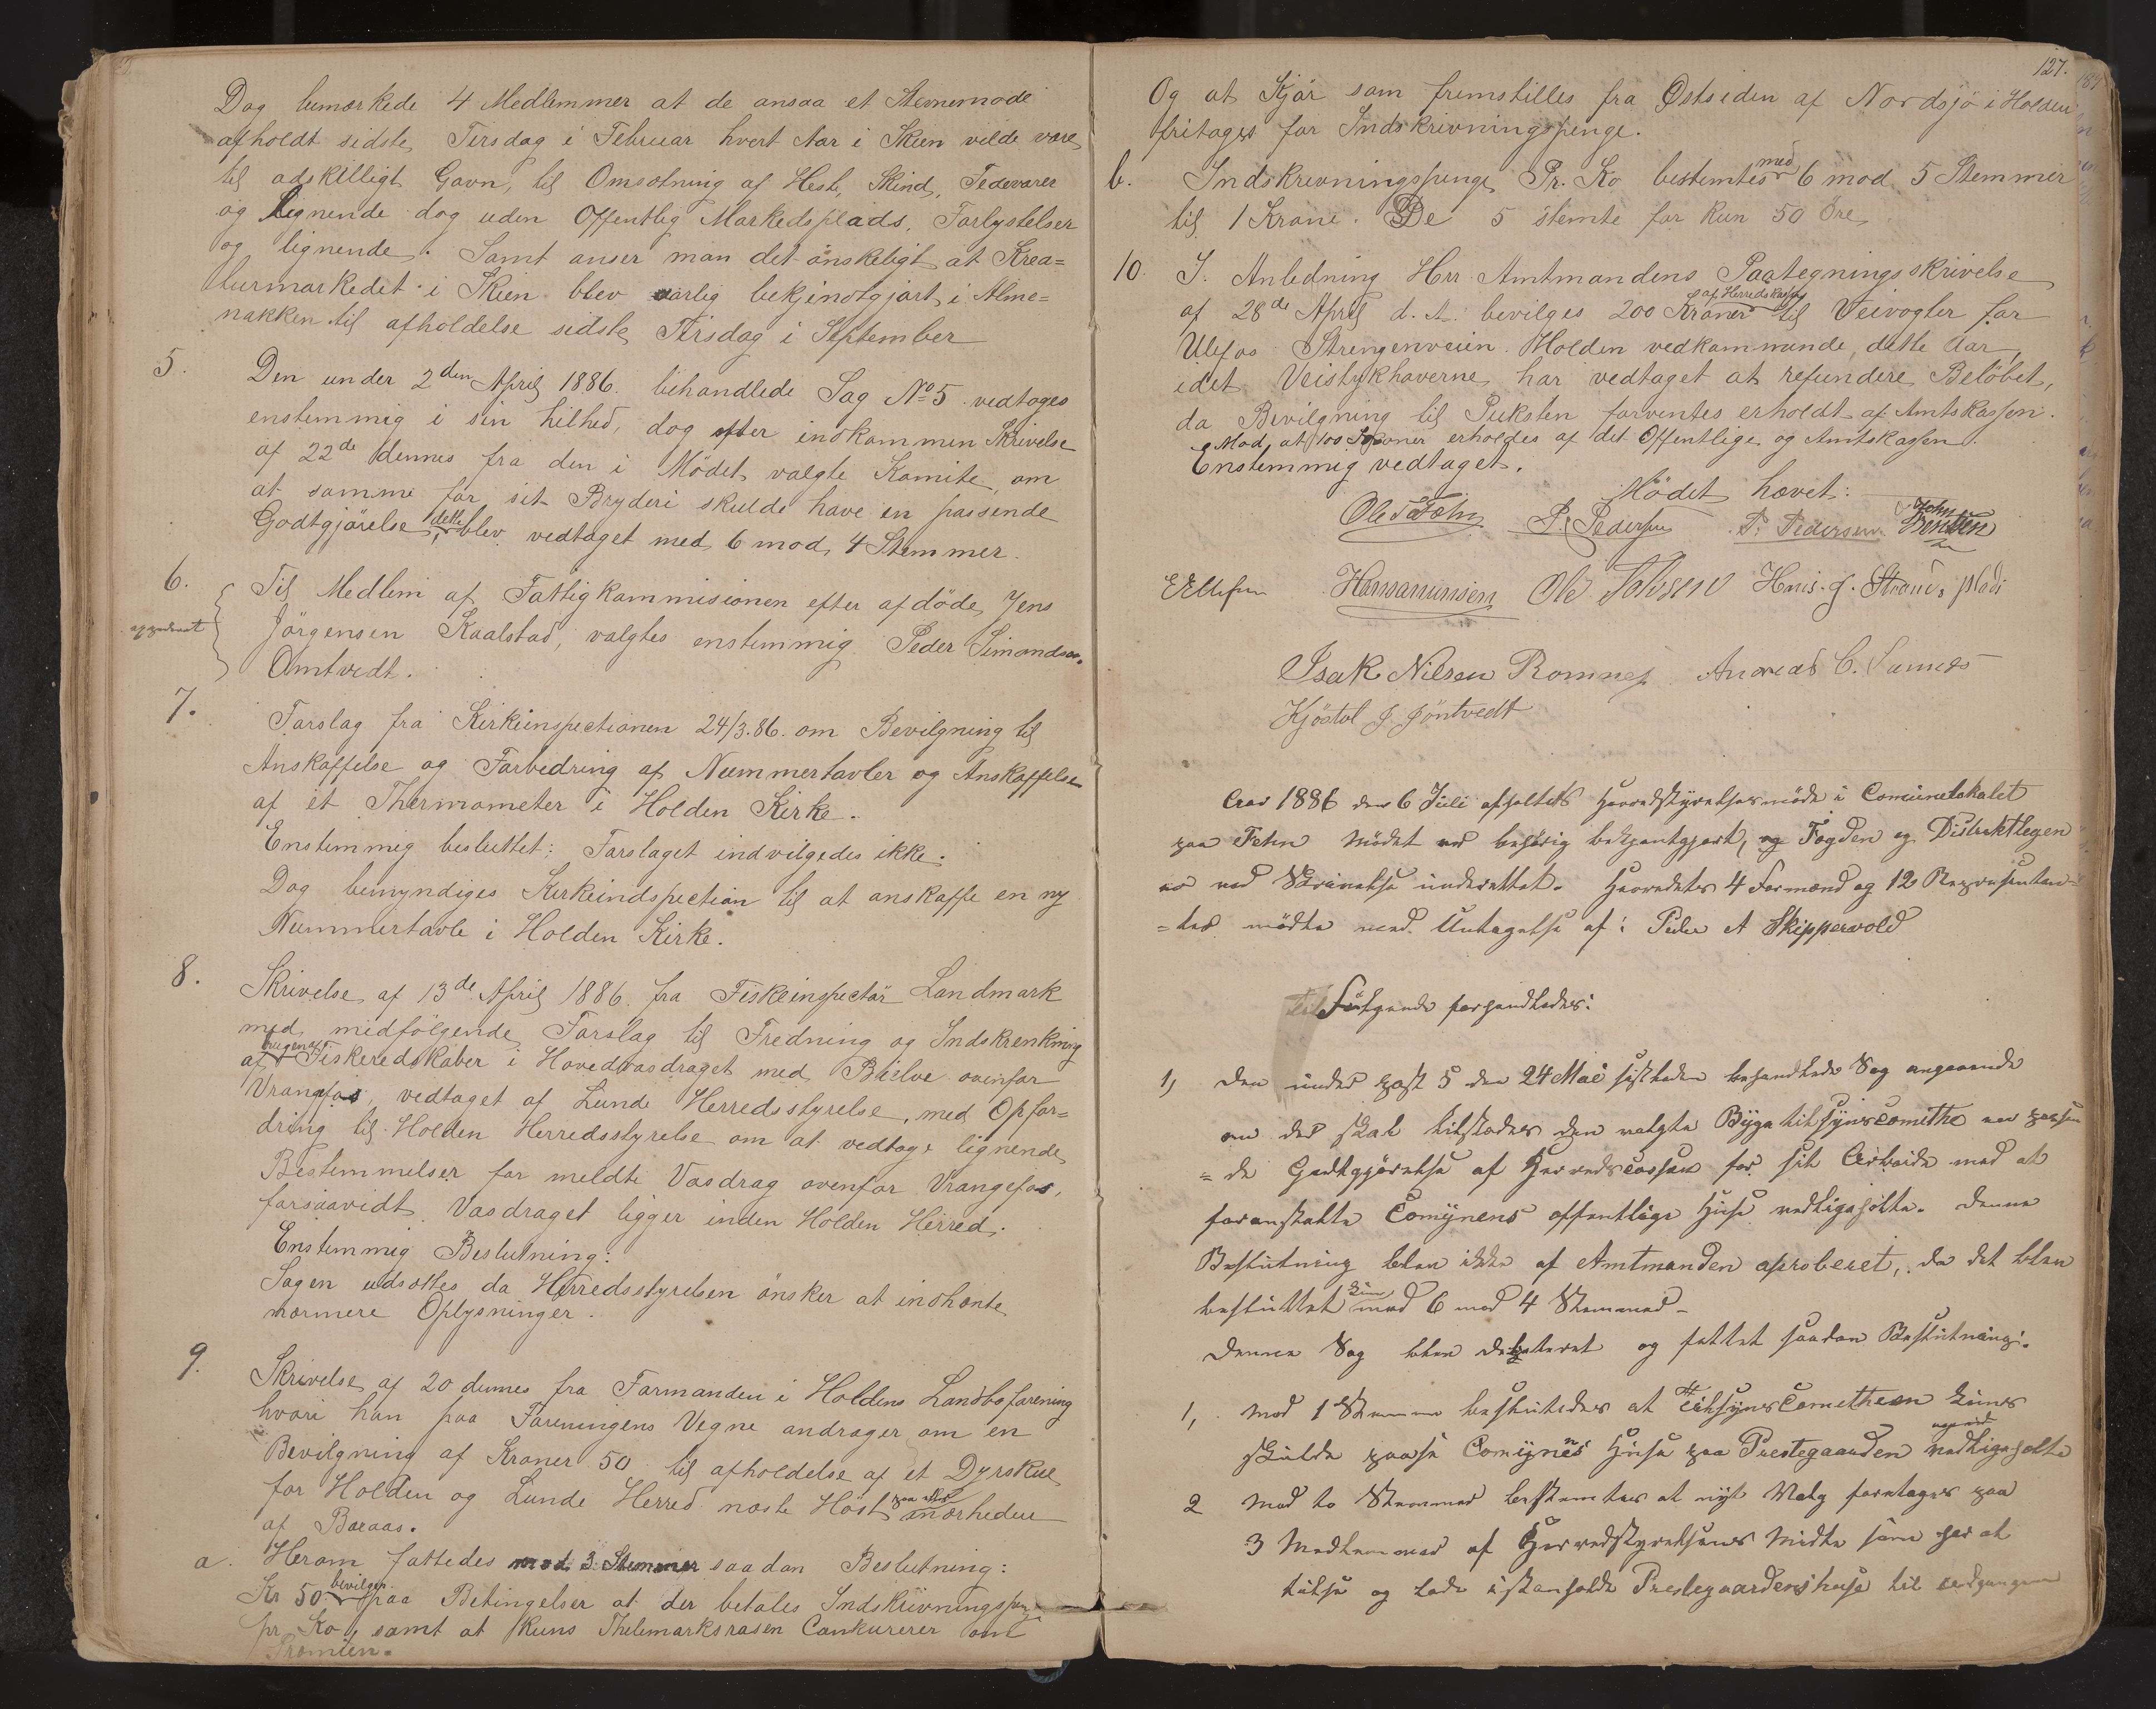 Dog bemærkede 4 Medlemmer at de ansaa et Stevnemøde
afholdt sidste Tirsdag i Februar hvert Aar i Skien vilde være
til adskilligt Gavn, til Omsætning af Heste, Skind, Fedevarer
og lignende dog uden Offentlig Markedsplads, Forlystelser
og lignende. Samt anser man det ønskeligt at Krea=
turmarkedet i Skien blev aarlig bekjendtgjort i Alme=
nakken til afholdelse sidste Tirsdag i September
5. Den under 2den April 1886. behandlede Sag No 5 vedtoges
enstemmig i sin helhed, dog efter indkommen Skrivelse
af 22de dennes fra den i Mödet valgte Komite, om
at samme for sit Bryderi skulde have en passende
Godtgjörelse, dette blev vedtaget med 6 mod 4 Stemmer.
6. Til Medlem af Fattigkommisionen efter afdöde Jens
Jörgensen Kaalstad, valgtes enstemmig Peder Simondsen
Omtvedt.
7. Forslag fra Kirkeinspectionen 24/3.86. om Bevilgning til
Anskaffelse og Forbedring af Nummertavler og Anskaffelse
af et Thermometer i Holden Kirke.
Enstemmig besluttet: Forslaget indvilgedes ikke.
Dog bemyndiges Kirkeindspection til at anskaffe en ny
Nummertavle i Holden Kirke.
8. Skrivelse af 13de April 1886. fra Fiskeinspectör Landmark
med medfölgende Forslag til Fredning og Indskrenkning
af brugen af Fiskeredskaber i Hovedvasdraget med Bielve ovenfor
Vrangfos, vedtaget af Lunde Herredsstyrelse, med Opfor=
dring til Holden Herredsstyrelse om at vedtage lignende
Bestemmelser for meldte Vasdrag ovenfor Vrangefos,
forsaavidt Vasdraget ligger inden Holden Herred.
Enstemmig Beslutning:
Sagen udsættes da Herredsstyrelsen önsker at indhente
nærmere Oplysninger.
9. Skrivelse af 20 dennes fra Formanden i Holdens Landboforening
hvori han paa Foreningens Vegne andrager om en
Bevilgning af Kroner 50 til afholdelse af et Dyrskue
for Holden og Lunde Herred næste Höst paa eller i nærheden
af Baraas.
a. Herom fattedes mod 3 Stemmer saadan Beslutning:
Kr 50 bevilges paa Betingelser at der betales Indskrivningspenge
pr. Ko, samt at kuns Thelemarksrasen Conkurerer om
Præmien.
127.
Og at Kjör som fremstilles fra Östsiden af Nordsjö i Holden
fritages for Indskrivningspenge.
b. Indskrevningspenge Pr. Ko bestemtes med 6 mod 5 Stemmer
til 1 Krone. De 5 stemte for kun 50 Öre
10. I Anledning Herr Amtmandens Paategningsskrivelse
af 28de April d. A. bevilges 200 Kroner af Herredskassen til Veivogter for
Ulefos Strengenveien Holden vedkommende dette Aar,
idet Veistykhaverne har vedtaget at refundere Belöbet,
da Bevilgning til Puksten forventes erholdt af Amtskassen.
Mod at 100 Kroner erholdes af det Offentlige og Amtskassen.
Enstemmig vedtaget.
Mödet hævet:
P. Pedersen P. Pedersen John Bentsen
E Ellefsen Hans Ole Tolvsen
Isak Nilsen Romnes Andreas C.
Kjöstol J Jöntvedt
Aar 1886 den 6 Juli afholtes Herredstyrelsesmöde i Comunelokalet
paa Fehn Mödet var behörig bekjentgjort, og Fogden og Distriktlegen
er ved Skrivelse underettet. Herredets 4 Formænd og 12 Representan=
=ter mödte med Untagelse af: Peder A Skippervold
Fölgende forhandledes:
1, Den under post 5 den 24 Mai sistleden behandlede Sag angaaende
om der skal tilstodes den valgte Bygetilsynscomithe en passen
=de Godtgjörelse af Herredscassen for sit Arbeide med at
foranstalte Comynens offentlige Huse vedligeholte. Denne
Beslutning blev ikke af Amtmanden aproberet, da det blev
besluttet kun med 6 mod 4 Stemmer-
Denne Sag blev debatteret og fattet saadan Beslutning:
1, Mod 1 Stemme besluttedes at TilsynsComitheen kuns
skulde paase Comynens Huse paa Prestegaarden vedligeholte
2 Mod to Stemmer bestemtes at nyt Valg foretages paa
3 Medlemmer af Herredstyrelsens Midte som har at
tilse og lade istanholde Prestegaardens huse til